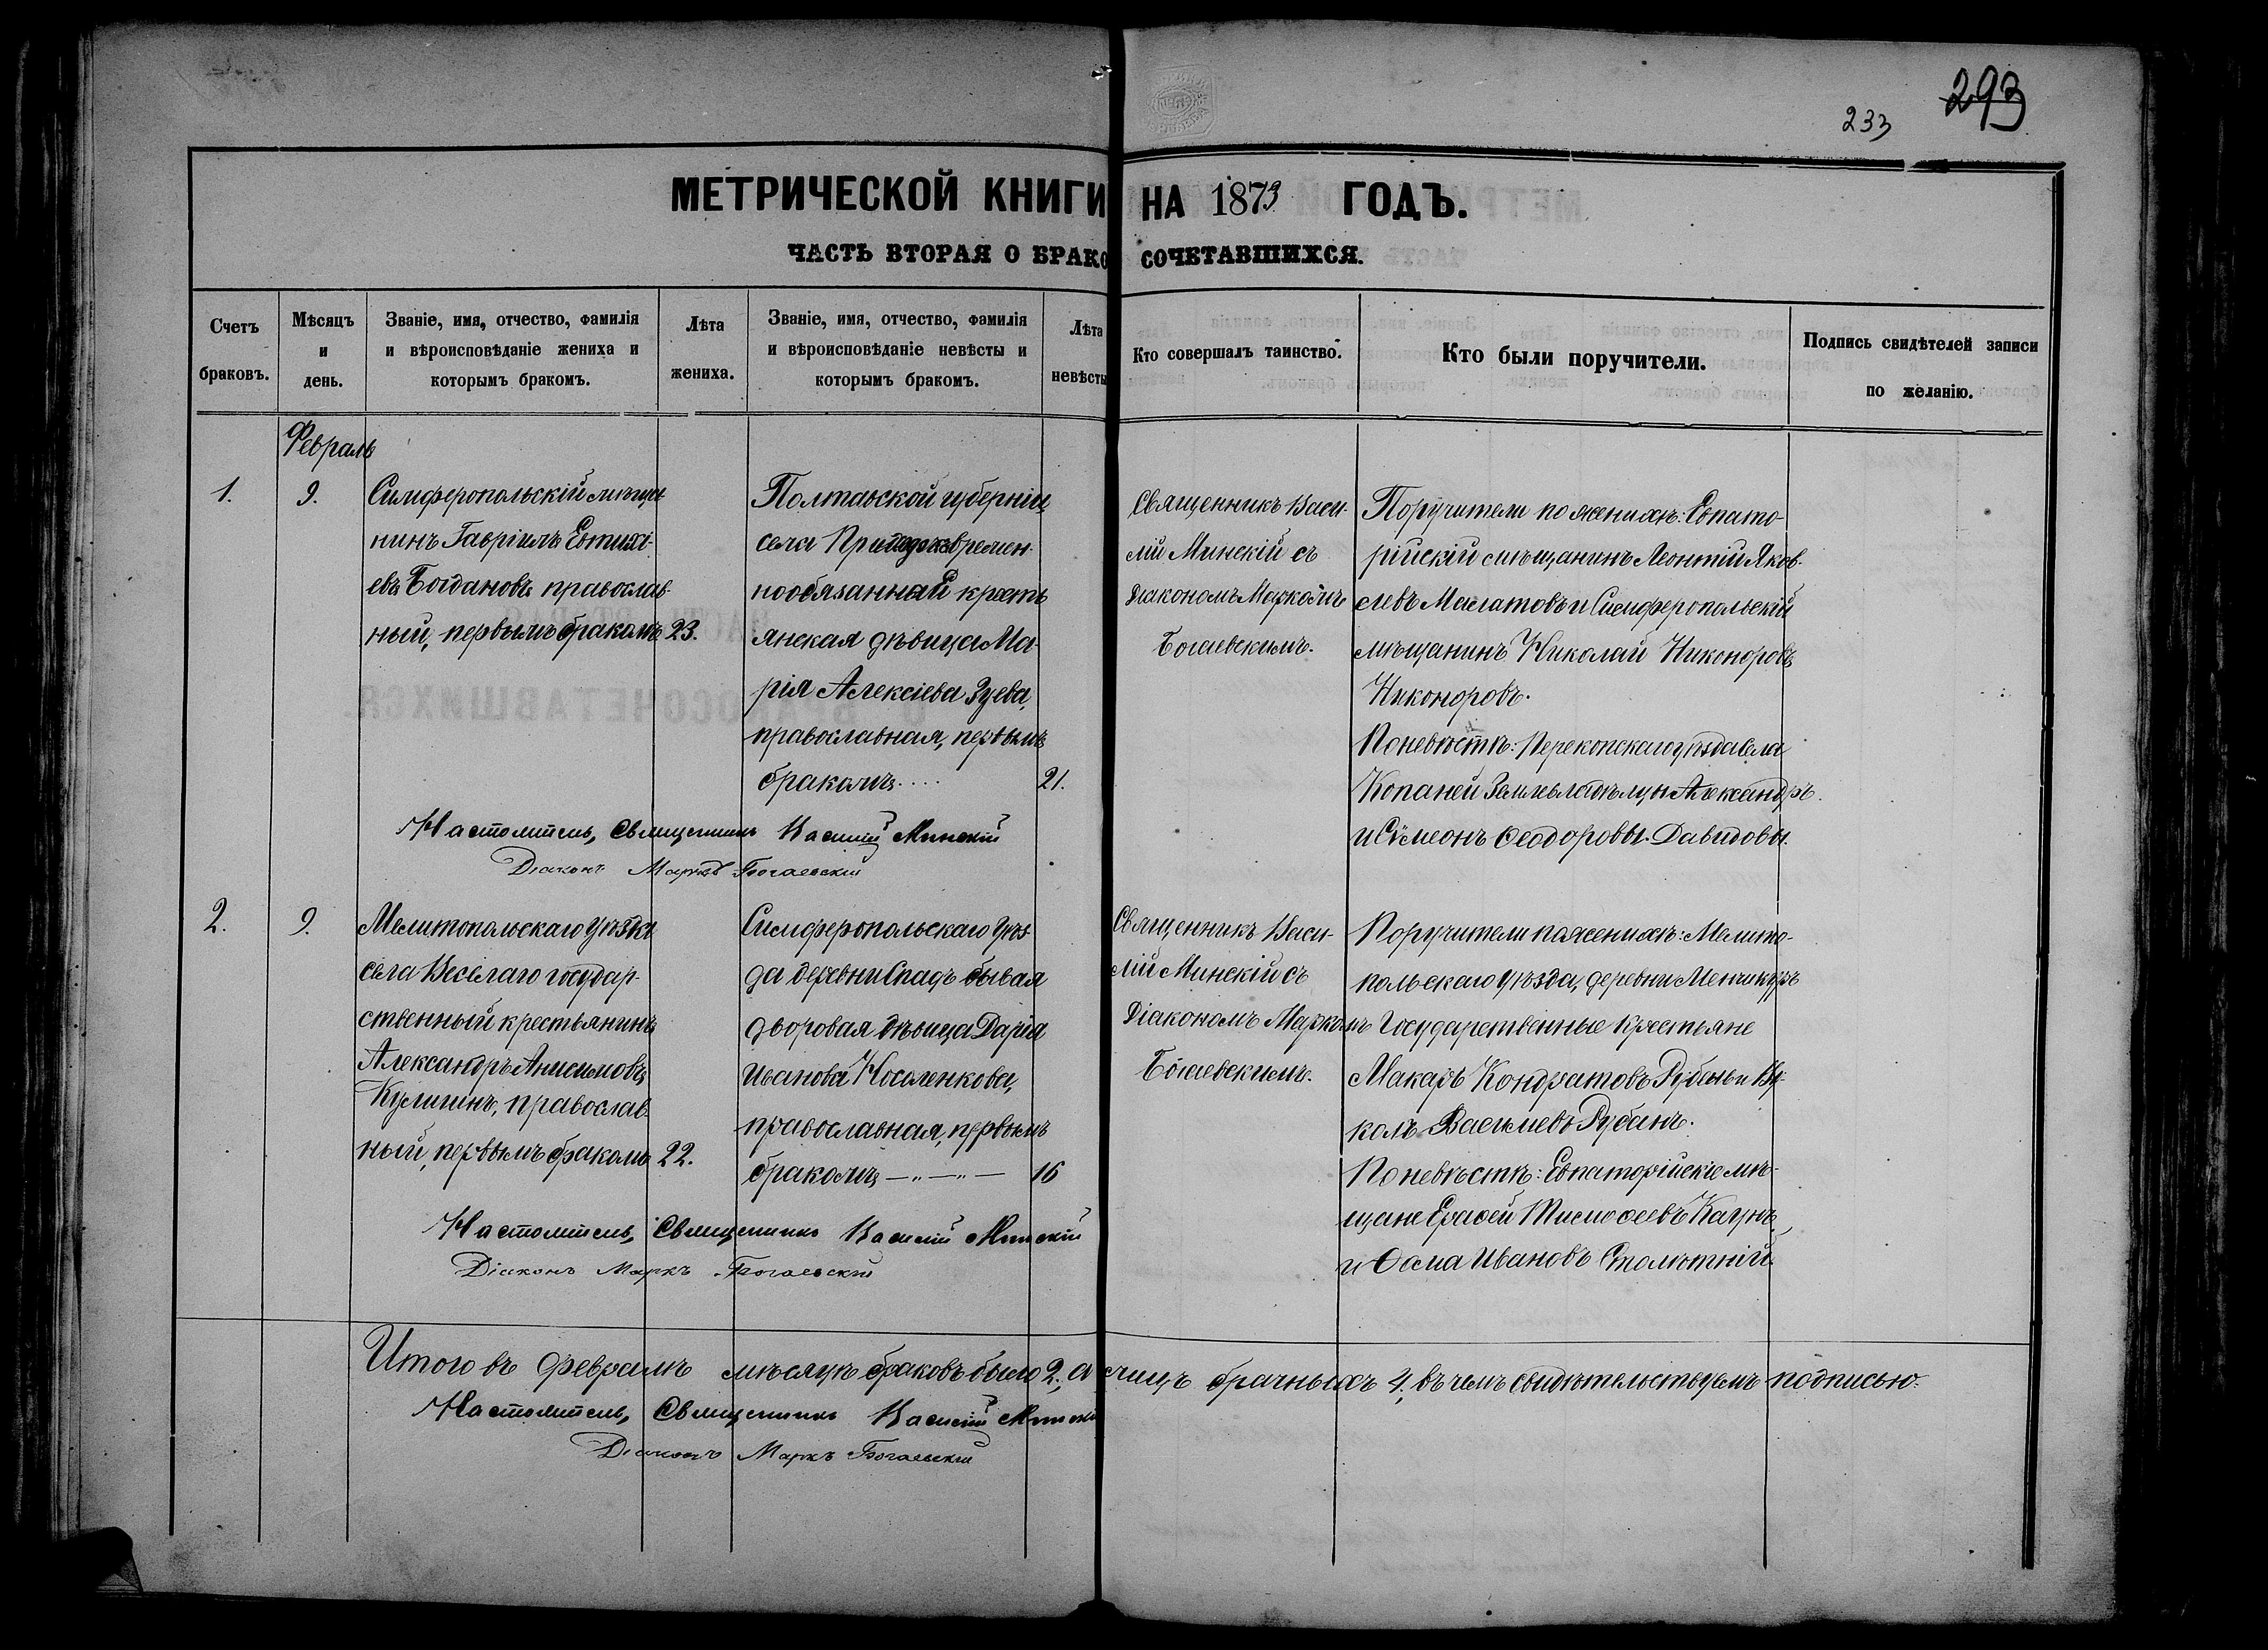 293
233
МЕТРИЧЕСКОЙ КНИГИ НА 1873 ГОДЪ.
ЧАСТЬ ВТОРАЯ О БРАКОСОЧЕТАВШИХСЯ.
Счетъ браковъ.
Мѣсяцъ и день.
Званіе, имя, отчество, фамилія и вѣроисповѣданіе жениха и которымъ бракомъ.
Лѣта жениха.
Званіе, имя, отчество, фамилія и вѣроисповѣданіе невѣсты и которымъ бракомъ.
Лѣта невѣсты
Кто совершалъ таинство.
Кто были поручители.
Подпись свидѣтелей записи по желанію.
Февраль
1.
9.
Симферопольскій мѣща-
нинъ Гавріилъ Евтихі-
евъ Богдановъ, православ-
ный, первымъ бракомъ
23.
Полтавской губерніи,
села времен-
нообязанная кресть
янская дѣвица Ма-
рія Алексіева Зуева,
православная, первымъ
бракомъ....
21.
Священникъ Васи-
лій Минскій съ
Діакономъ Маркомъ
Богаевскимъ.
Поручители по женихѣ: Евпато-
рійскій мѣщанинъ Леонтій Яков-
левъ Маслатовъ и Симферопольскій
мѣщанинъ Николай Никоноровъ
Никоноровъ.
По невѣстѣ: Перекопскаго уѣзда села
Копаней Землевладѣлцы Александръ
и Сѵмеонъ Ѳеодоровы Давидовы.
Настоятель, Священникъ Василій Минскій
Діаконъ Маркъ Богаевскій
2.
9.
Мелитопольскаго уѣзда
села Веселаго государ-
ственный крестьянинъ
Александръ Анисимовъ
Кулигинъ, православ-
ный, первымъ бракомъ
22.
Симферопольскаго уѣз-
да деревни Спадъ бывая
дворовая дѣвица Дарія
Иванова Носаленкова,
православная, первымъ
бракомъ —"—"—
16
Священникъ Васи-
лій Минскій съ
Діакономъ Маркомъ
Богаевскимъ.
Поручители по женихѣ: Мелито-
польскаго уѣзда, деревни Менчикуръ
Государственные Крестьяне
Макаръ Кондратовъ Рубанъ и Ву-
колъ Васильевъ Рубанъ.
По невѣстѣ: Евпаторійскіе мѣ-
щане Ерофей Тимофеевъ Кагунъ
и Ѳома Ивановъ Столѣтній.
Настоятель, Священникъ Василій Минскій
Діаконъ Маркъ Богаевскій
Итого въ Февралѣ мѣсяцѣ браковъ было 2, а лицъ брачныхъ 4, въ чемъ свидѣтельствуемъ подписью.
Настоятель, Священникъ Василій Минскій
Діаконъ Маркъ Богаевскій